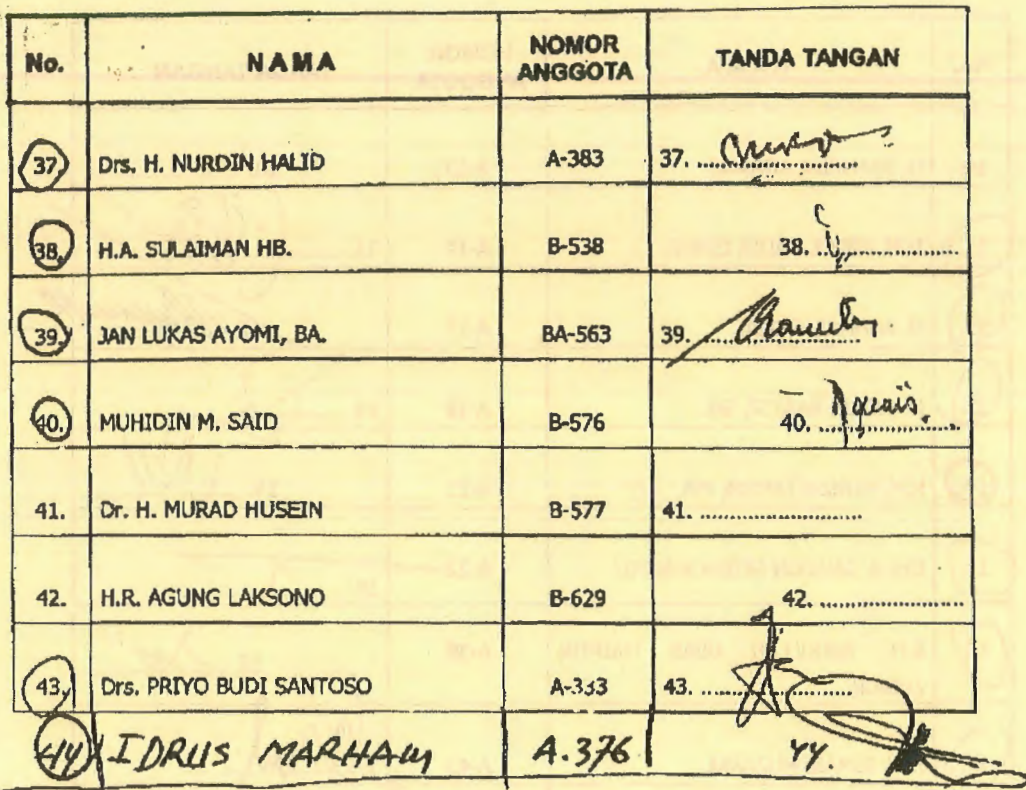 No. NAMA NOMOR ANGGOTA TANDA TANGAN
37. Drs. H. NURDIN HALID A-383 37.
38. H.A. SULAIMAN HB. B-538 38.
39. JAN LUKAS AYOMI, BA. BA-563 39.
40. MUHIDIN M. SAID B-576 40.
41. Dr. H. MURAD HUSEIN B-577 41.
42. H.R. AGUNG LAKSONO B-629 42.
43. Drs. PRIYO BUDI SANTOSO A-333 43.
44 IDRUS MARHAM A.376 44.